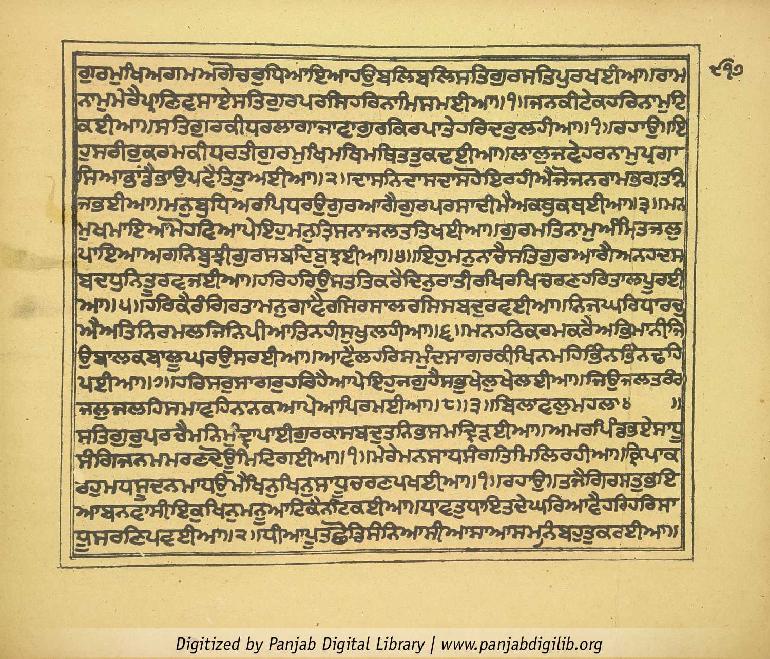 ਗੁਰਮੁਖਿਅਗਮਅਗੋਚਰੁਧਿਆਇਆਹਉਬਲਿਬਲਿਸਤਿਗੁਰਸਤਿਪੁਰਖਈਆ॥ਰਾਮ
ਨਾਮੁਮੇਰੈਪ੍ਰਾਣਿਵਸਾਏਸਤਿਗੁਰਪਰਸਿਹਰਿਨਾਮਿਸਮਈਆ॥੧॥ਜਨਕੀਟੇਕਹਰਿਨਾਮੁਟਿ
ਕਈਆ॥ਸਤਿਗੁਰਕੀਧਰਲਾਗਾਜਾਵਾਗੁਰਕਿਰਪਾਤੇਹਰਿਦਰੁਲਹੀਆ॥੧॥ਰਹਾਉ॥ਇ
ਹੁਸਰੀਰੁਕਰਮਕੀਧਰਤੀਗੁਰਮੁਖਿਮਥਿਮਥਿਤਤੁਕਢਈਆ॥ਲਾਲੁਜਵੇਹਰਨਾਮੁਪ੍ਰਗਾ
ਸਿਆਭਾਂਡੈਭਾਉਪਵੈਤਿਤੁਅਈਆ॥੨॥ਦਾਸਨਿਦਾਸਦਾਸਹੋਇਰਹੀਐਜੋਜਨਰਾਮਭਗਤਨਿ
ਜਭਈਆ॥ਮਨੁਬੁਧਿਅਰਪਿਧਰਉਗੁਰਆਗੈਗੁਰਪਰਸਾਦੀਮੈਅਕਥੁਕਥਈਆ॥੩॥ਮਨ
ਮੁਖਮਾਇਆਮੋਹਵਿਆਪੇਇਹੁਮਨੁਤ੍ਰਿਸਨਾਜਲਤਤਿਖਈਆ॥ਗੁਰਮਤਿਨਾਮੁਅੰਮ੍ਰਿਤਜਲੁ
ਪਾਇਆਅਗਨਿਬੁਝੀਗੁਰਸਬਦਿਬੁਝਈਆ॥੪॥ਇਹੁਮਨੁਨਾਚੈਸਤਿਗੁਰਆਗੈਅਨਹਦਸ
ਬਦਧੁਨਿਤੂਰਵਜਈਆ॥ਹਰਿਹਰਿਉਸਤਤਿਕਰੈਦਿਨੁਰਾਤੀਰਖਿਰਖਿਚਰਣਹਰਿਤਾਲਪੂਰਈ
ਆ॥੫॥ਹਰਿਕੈਰੰਗਿਰਤਾਮਨੁਗਾਵੈਰਸਿਰਸਾਲਰਸਿਸਬਦੁਰਵਈਆ॥ਨਿਜਘਰਿਧਾਰਚੁ
ਐਅਤਿਨਿਰਮਲਜਿਨਿਪੀਆਤਿਨਹੀਸੁਖੁਲਹੀਆ॥੬॥ਮਨਹਠਿਕਰਮਕਰੈਅਭਿਮਾਨੀਜਿ
ਉਬਾਲਕਬਾਲੂਘਰਉਸਰਈਆ॥ਆਵੈਲਹਰਿਸਮੁੰਦਸਾਗਰਕੀਖਿਨਮਹਿਭਿੰਨਭਿੰਨਢਹਿ
ਪਈਆ॥੭॥ਹਰਿਸਰੁਸਾਗਰੁਹਰਿਹੈਆਪੇਇਹੁਜਗੁਹੈਸਭੁਖੇਲੁਖੇਲਈਆ॥ਜਿਉਜਲਤਰੰਗ
ਜਲੁਜਲਹਿਸਮਾਵਹਿਨਾਨਕਆਪੇਆਪਿਰਮਈਆ॥੮॥੩॥ਬਿਲਾਵਲੁਮਹਲਾ੪ ॥
ਸਤਿਗੁਰੁਪਰਚੈਮਨਿਮੁੰਦ੍ਰਾਪਾਈਗੁਰਕਾਸਬਦੁਤਨਿਭਸਮਦ੍ਰਿੜਈਆ॥ਅਮਰਪਿੰਡਭਏਸਾਧੂ
ਸੰਗਿਜਨਮਮਰਣਦੋਊਮਿਟਿਗਈਆ॥੧॥ਮੇਰੇਮਨਸਾਧਸੰਗਤਿਮਿਲਿਰਹੀਆ॥ਕ੍ਰਿਪਾਕ
ਰਹੁਮਧਸੂਦਨਮਾਧਉਮੈਖਿਨੁਖਿਨੁਸਾਧੂਚਰਣਪਖਈਆ॥੧॥ਰਹਾਉ॥ਤਜੈਗਿਰਸਤੁਭਇ
ਆਬਨਵਾਸੀਇਕੁਖਿਨੁਮਨੂਆਟਿਕੈਨਟਿਕਈਆ॥ਧਾਵਤੁਧਾਇਤਦੇਘਰਿਆਵੈਹਰਿਹਰਿਸਾ
ਧੂਸਰਣਿਪਵਈਆ॥੨॥ਧੀਆਪੂਤਛੋਡਿਸੰਨਿਆਸੀਆਸਾਆਸਮਨਿਬਹੁਤੁਕਰਈਆ॥
੯੧੭
Digitized by Panjab Digital Library | www.panjabdigilib.org